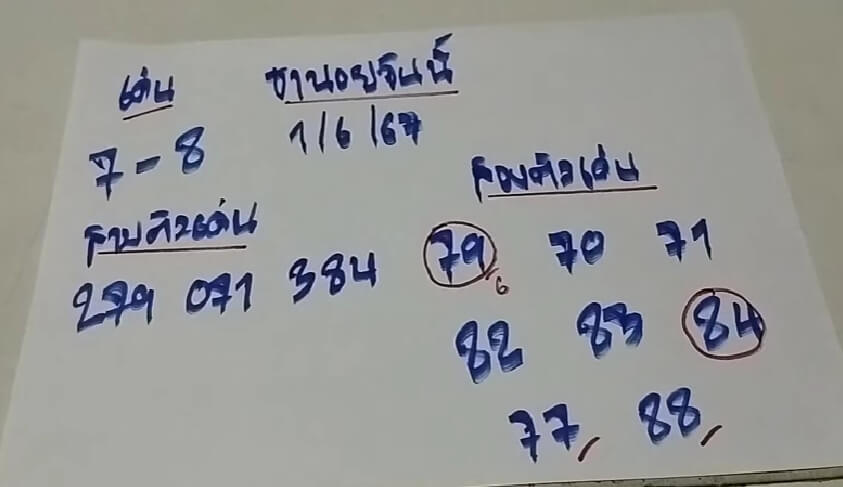 เด่น ฮานอยวันนี้
7-8 1/6/67
สามตัวเด่น สองตัวเด่น
279 071 384 79 70 71
6
82 83 84
77, 88,